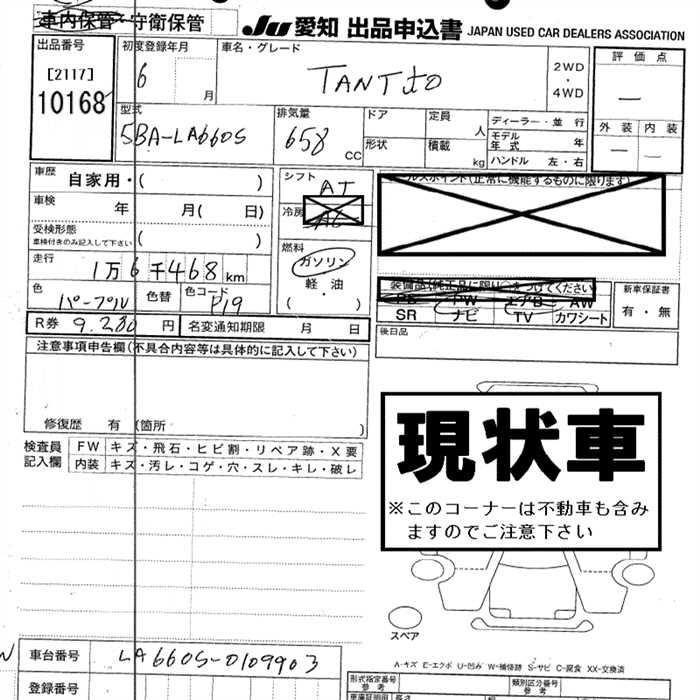 車内保管・守衛保管
JU 愛知 出品申込書 JAPAN USED CAR DEALERS ASSOCIATION
出品番号
[2117]
10168
初度登録年月
6 月
車名・グレード
TANTナO
2WD
・
4WD
評価点
—
外装 内装
— —
型式
5BA-LA660S
排気量
658 CC
ドア
形状
定員 人
積載 kg
ディーラー・並行
モデル年式 年
ハンドル 左・右
車歴 自家用・( )
車検 年 月( 日)
受検形態
車検付きのみ記入して下さい ( )
走行 1万6千468km
色 パープル 色替 色コード P19
シフト AT
冷房 AC
燃料
ガソリン
軽油
( ・ )
セールスポイント(正常に機能するものに限ります)
装備品(純正品に限り○をつけてください)
PS PW エアロ AW
SR ナビ TV カワシート
新車保証書
有・無
R券 9.280円 名変通知期限 月 日
後日品
注意事項申告欄(不具合内容等は具体的に記入して下さい)
修復歴 有 (箇所 )
検査員記入欄
FW キズ・飛石・ヒビ割・リペア跡・X要
内装 キズ・汚レ・コゲ・穴・スレ・キレ・破レ
現状車
※このコーナーは不動車も含み
ますのでご注意下さい
スペア
A-キズ E-エクボ U-凹み W-補修跡 S-サビ C-腐食 XX-交換済
車台番号 LA660S-0109903
登録番号
形式指定番号
参考
類別区分番号
参考
車両寸法 長さ